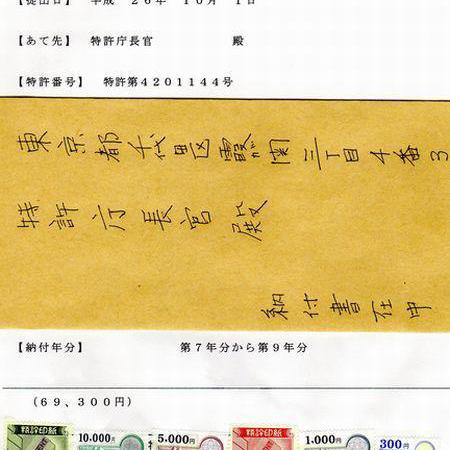 【提出日】 平成 26年 10月 1日
【あて先】 特許庁長官 殿
【特許番号】 特許第4201144号
東京都千代田区霞が関三丁目4番3
特許庁長官殿
納付書在中
【納付年分】 第7年分から第9年分
(69、300円)
特許印紙 10.000円 5.000円 特許印紙 1.000円 300円